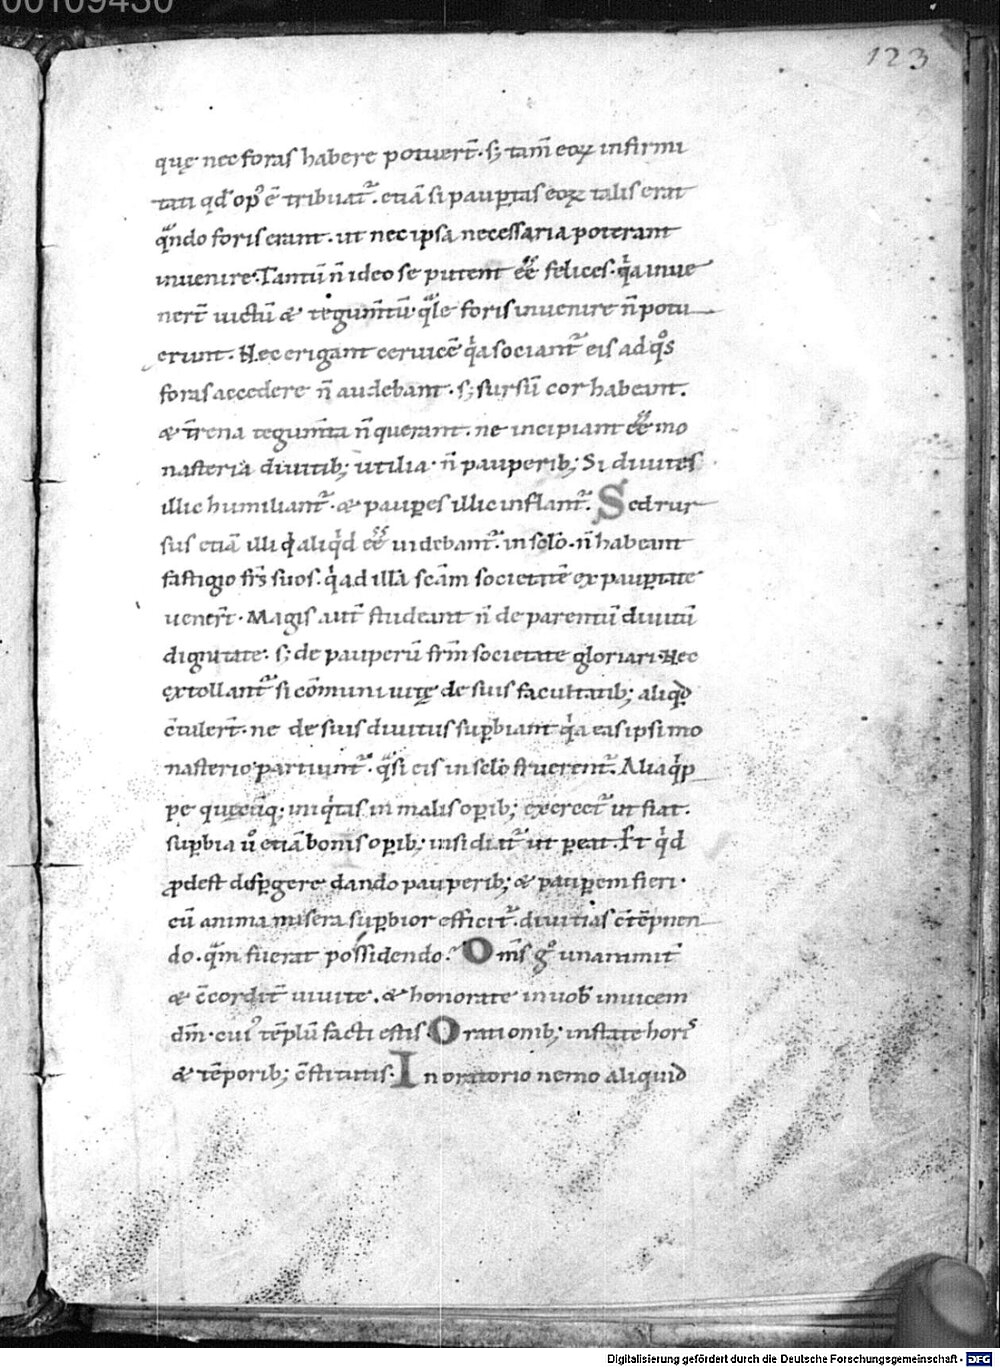 00109430
123
quę nec foras habere potuer̄t. s; tam̄ eoꝝ infirmi
tati qđ op᷒ ē tribuat᷑. etiā si paup̄tas eoꝝ talis erat
qͣndo foris erant. ut nec ipsa necessaria poterant
inuenire. Tantū n̄ ideo se putent ee̅ felices. qͥa inue
ner̄t uictū & tegum̄tū qͣle foris inuenire n̄ potu
erunt. Nec erigant ceruicē qͥa sociant᷑ eis ad qͦs
foras accedere n̄ audebant. s; sursū cor habeant.
& tr̄ena tegum̄ta n̄ querant. ne incipiant ee̅ mo
nasteria diuitib; utilia. n̄ pauperib; Si diuites
illic humiliant᷑. & paup̄es illic inflant᷑. Sed rur
sus etiā illi qͥ aliqͥd ee̅ uidebant᷑ in sc̄lo. n̄ habeant
fastigio fr̄s suos. qͥ ad illā sc̄am societatē ex paup̄tate
uener̄t. Magis aut̄ studeant n̄ de parentū diuitū
dignitate. s; de pauperū fr̄m societate gloriari. Nec
extollant᷑ si cōmuni uitę de suis facultatib; aliqͥd
c̄tuler̄t. ne de suis diuitiis sup̄biant qͥa eas ipsi mo
nasterio partiunt᷑. qͣsi eis in sc̄lo fruerent᷑. Alia qͥp
pe quęcūq; iniqͥtas in malis op̄ib; exercet᷑ ut fiat.
sup̄bia ů etiā bonis op̄ib; insidiat᷑ ut p̄eat. Et qͥd
ꝓdest disp̄gere dando pauperib; & paup̄em fieri.
cū anima misera sup̄bior efficit᷑ diuitias c̄tēpnen
do. qͣm fuerat possidendo. Om̄s gͦ unanimit̄
& c̄cordit̄ uiuite. & honorate in uob̄ inuicem
dm̄. cui᷒ tēplū facti estis. Orationib; instate horis
& tēporib; c̄stitutis. In oratorio nemo aliquid
Digitalisierung gefördert durch die Deutsche Forschungsgemeinschaft - DFG